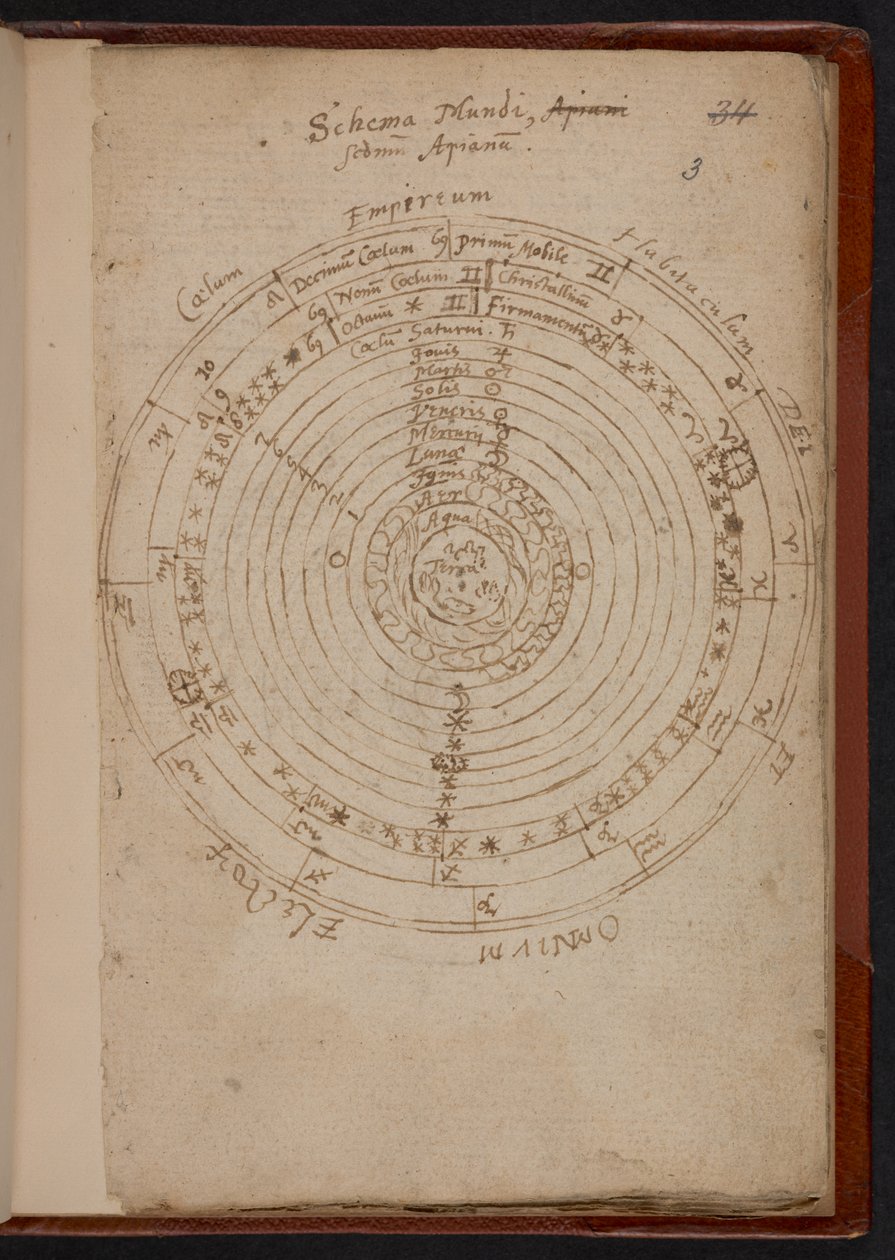 Schema Mundi, Apiani
34
sedm̄ Apianū.
3
Cœlum Empireum Habitaculum DEI ET OMNIVM Electorꝭ
Decimū Cœlum ♋ Primū Mobile ♊
Nonū Cœlum ♊ Christallinū
Octavū * ♊ Firmamentū
Cœlū Saturni. ♄
Jovis ♃
Martis ♂
Solis ☉
Veneris ♀
Mercurij ☿
Lunæ ☽
Ignis
Aer
Aqua
Terra
10
9
8
7
6
5
4
3
2
1
♋
♋
♌
♌
♌
♍
♍
♍
♎
♎
♎
♏
♏
♏
♐
♐
♐
♑
♑
♑
♒
♒
♒
♓
♓
♓
♈
♈
♈
♉
♉
♉